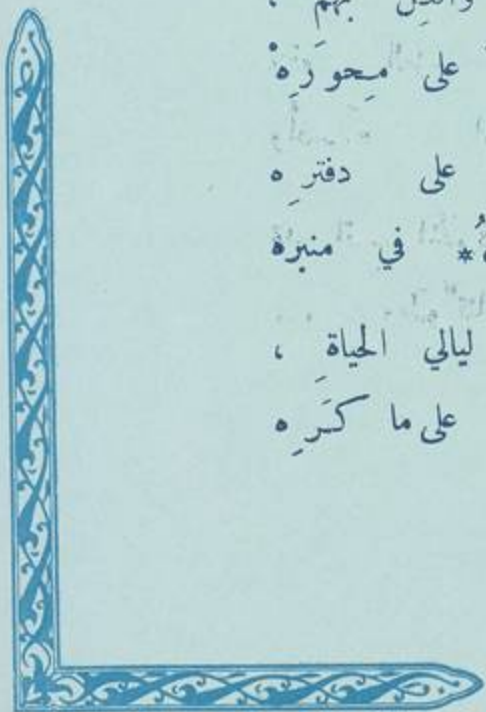 بهم ،
على مِحوَرِهْ
على دفترِه
في منبره
ليالي الحياةِ ،
على ما كَرِه